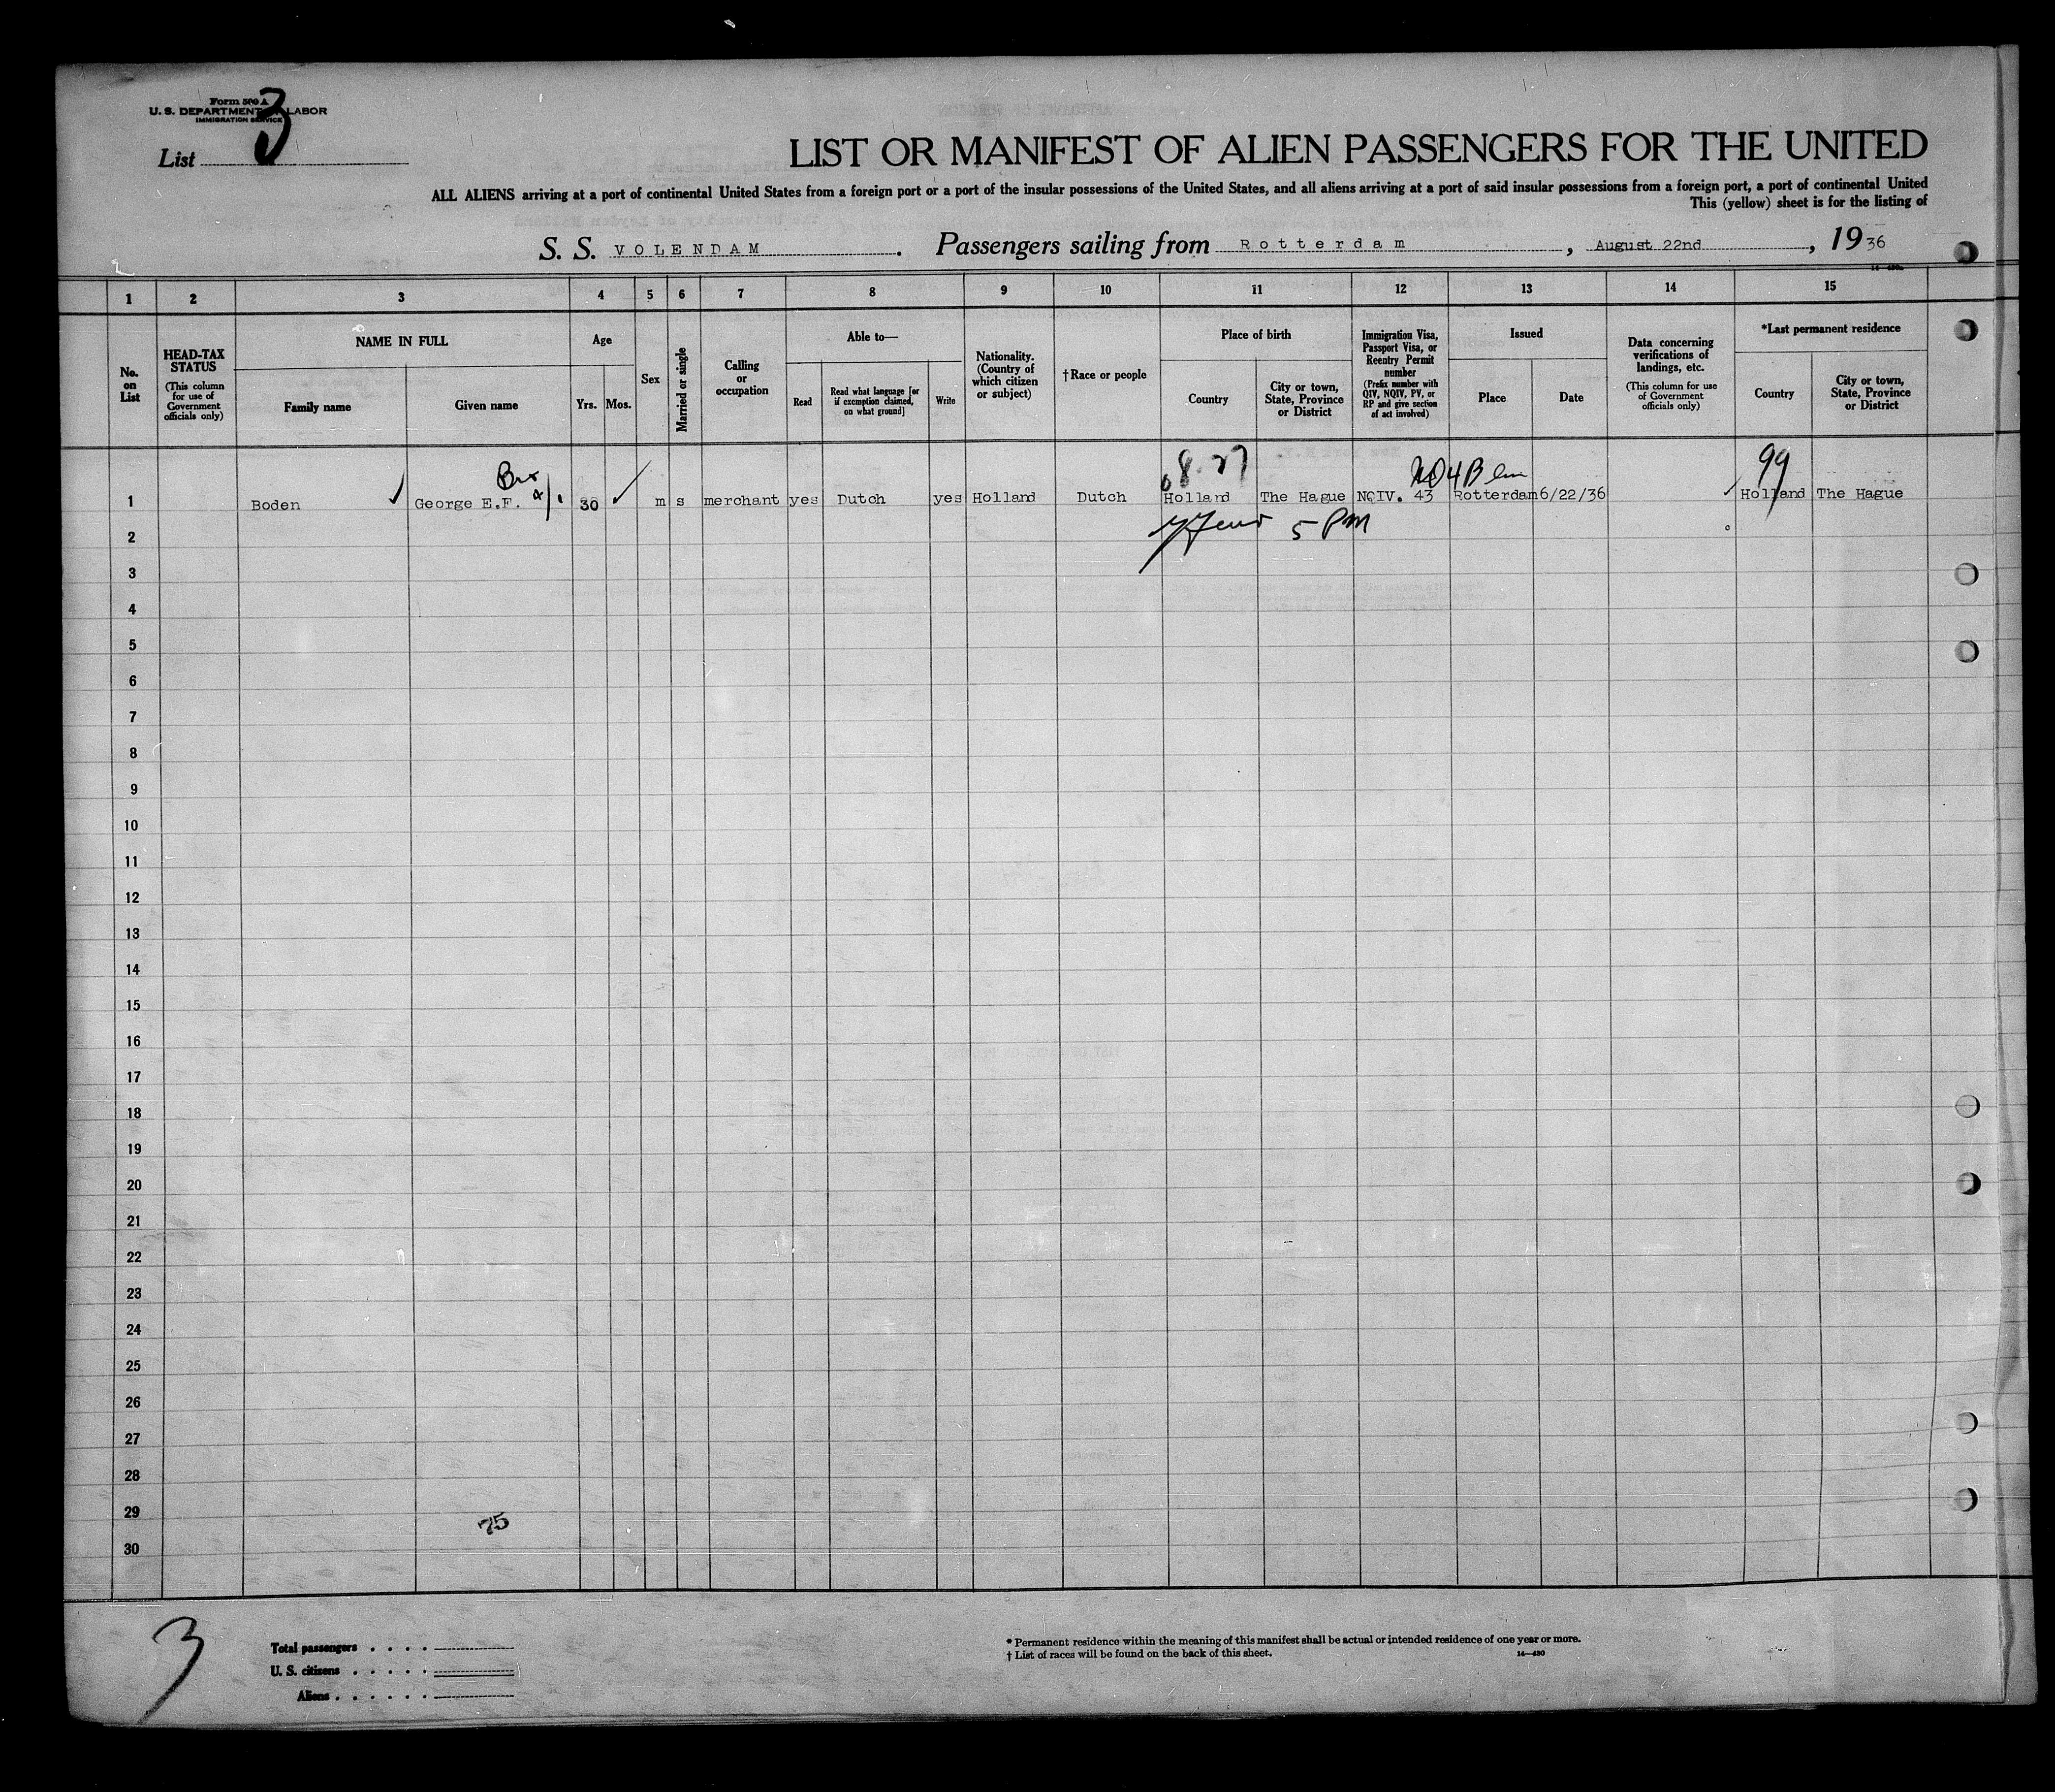 Form 500 A
U. S. DEPARTMENT OF LABOR
IMMIGRATION SERVICE
List 3
LIST OR MANIFEST OF ALIEN PASSENGERS FOR THE UNITED
ALL ALIENS arriving at a port of continental United States from a foreign port or a port of the insular possessions of the United States, and all aliens arriving at a port of said insular possessions from a foreign port, a port of continental United
This (yellow) sheet is for the listing of
S. S. VOLENDAM. Passengers sailing from Rotterdam, August 22nd, 1936
1 2 3 4 5 6 7 8 9 10 11 12 13 14 15
No. on List
HEAD-TAX STATUS
(This column for use of Government officials only)
NAME IN FULL
Family name
Given name
Age
Yrs.
Mos.
Sex
Married or single
Calling or occupation
Able to—
Read
Read what language [or if exemption claimed, on what ground]
Write
Nationality. (Country of which citizen or subject)
†Race or people
Place of birth
Country
City or town, State, Province or District
Immigration Visa, Passport Visa, or Reentry Permit number
(Prefix number with QIV, NQIV, PV, or RP and give section of act involved)
Issued
Place
Date
Data concerning verifications of landings, etc.
(This column for use of Government officials only)
*Last permanent residence
Country
City or town, State, Province or District
8.27 99
1 Boden George E.F. 30 m s merchant yes Dutch yes Holland Dutch Holland The Hague NQIV. 43 Rotterdam 6/22/36 Holland The Hague
5 PM
2
3
4
5
6
7
8
9
10
11
12
13
14
15
16
17
18
19
20
21
22
23
24
25
26
27
28
29
75
30
3
Total passengers
U. S. citizens
Aliens
* Permanent residence within the meaning of this manifest shall be actual or intended residence of one year or more.
† List of races will be found on the back of this sheet.
14—430